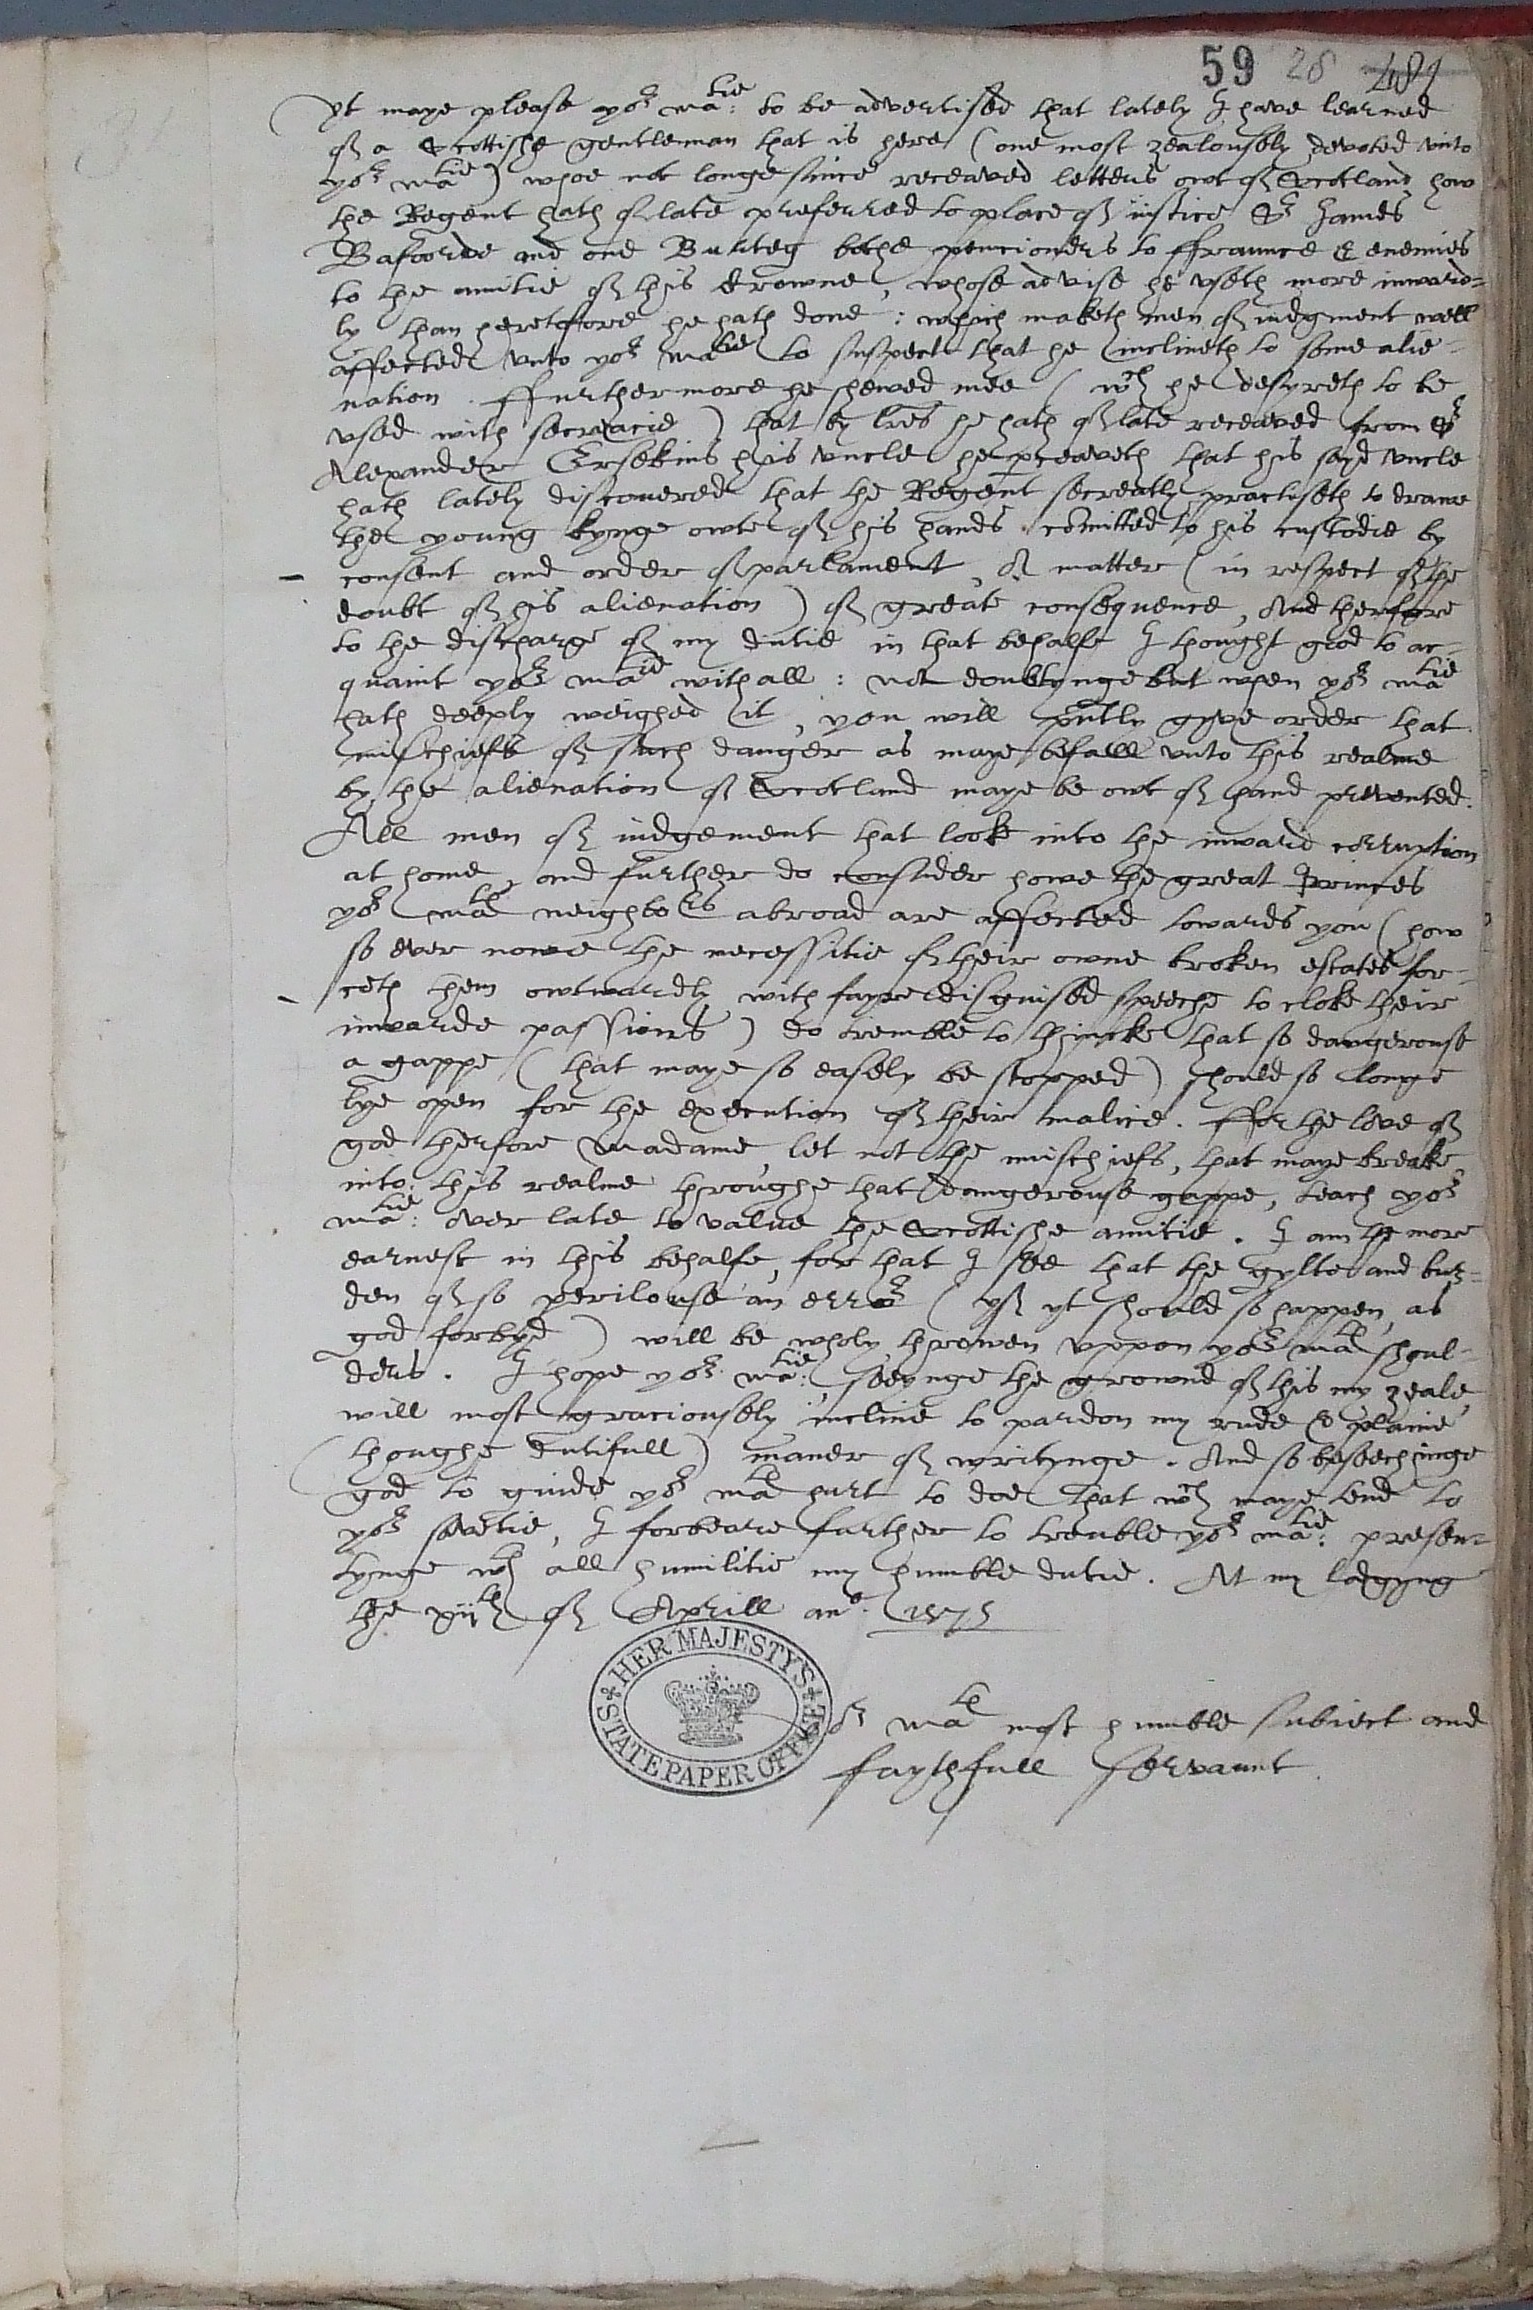 59 28 481
Yt maye please yor Matie: to be advertised that lately I have learned
of a Scottishe gentleman that is here (one most zealously devoted unto
yor Matie) whoe not longe since receaved letters owt of Scotland, how
the Regent hath of late preferred to place of iustice Sr James
Bafoorde and one Bu bothe pencioners to Fraunce & enemies
to the amitie of this Crowne, whose advise he vseth more inward-
ly than heretofore he hath done: which maketh men of iudgment well
affected vnto yor Matie to suspect that he inclineth to some alie-
nation. ffurthermore he shewed mee (wch he desyreth to be
vsed with secreacie) that by lres he hath of late receaved from Sr
Alexander Erskins his vncle he pceaveth that his sayd vncle
hath lately discouered that the Regent secreatly practiseth to drawe
the young kynge owte of his hands comitted to his custodie by
consent and order of parlament, A matter (in respect of the
doubt of his alienation) of greate consequence, And therfore
to the discharge of my dutie in that behalfe I thought good to ac-
quaint yor Matie withall: not doubtynge but when yor Matie
hath deeply weighed it, you will pntly gyve order that
mischiefs of such danger as maye befall vnto this realme
by the alienation of Scotland maye be owt of hand prevented.
All men of iudgement that look into the inward corruption
at home, and further do consider howe the great Princes
yor Mats neighbors abroad are affected towards you (how
so ever nowe the necessitie of their owne broken estates for-
ceth them owtwardly with fayre disguised speeche to cloke their
inwarde passions) do tremble to thincke that so dangerouse
a gappe (that maye so easely be stopped) should so longe
lye open for the execution of their malice. ffor the love of
god therfore Madame let not the mischiefs, that maye breake
into this realme throughe that dangerouse gappe, teach yor
Matie: over late to value the Scottishe amitie. I am the more
earnest in this behalfe, for that I see that the gylte and bur-
den of so perilouse an error (yf yt should so happen, as
god forbyd) will be wholy throwen vppon yor Mats shoul-
ders. I hope yor Matie: seeynge the grownd of this my zeale,
will most graciously incline to pardon my rude & plaine
(thoughe dutifull) maner of writynge. And so beseechinge
god to guide yor Mats hart to doe that wch maye tend to
yor savetie, I forbeare further to trouble yor Matie: presen-
tynge wth all humilitie my humble dutie. At my lodgyng
the xiith of Aprill ano. 1575
HER MAJESTY'S STATE PAPER OFFICE
yor Mats most humble subiect and
faythfull servaunt